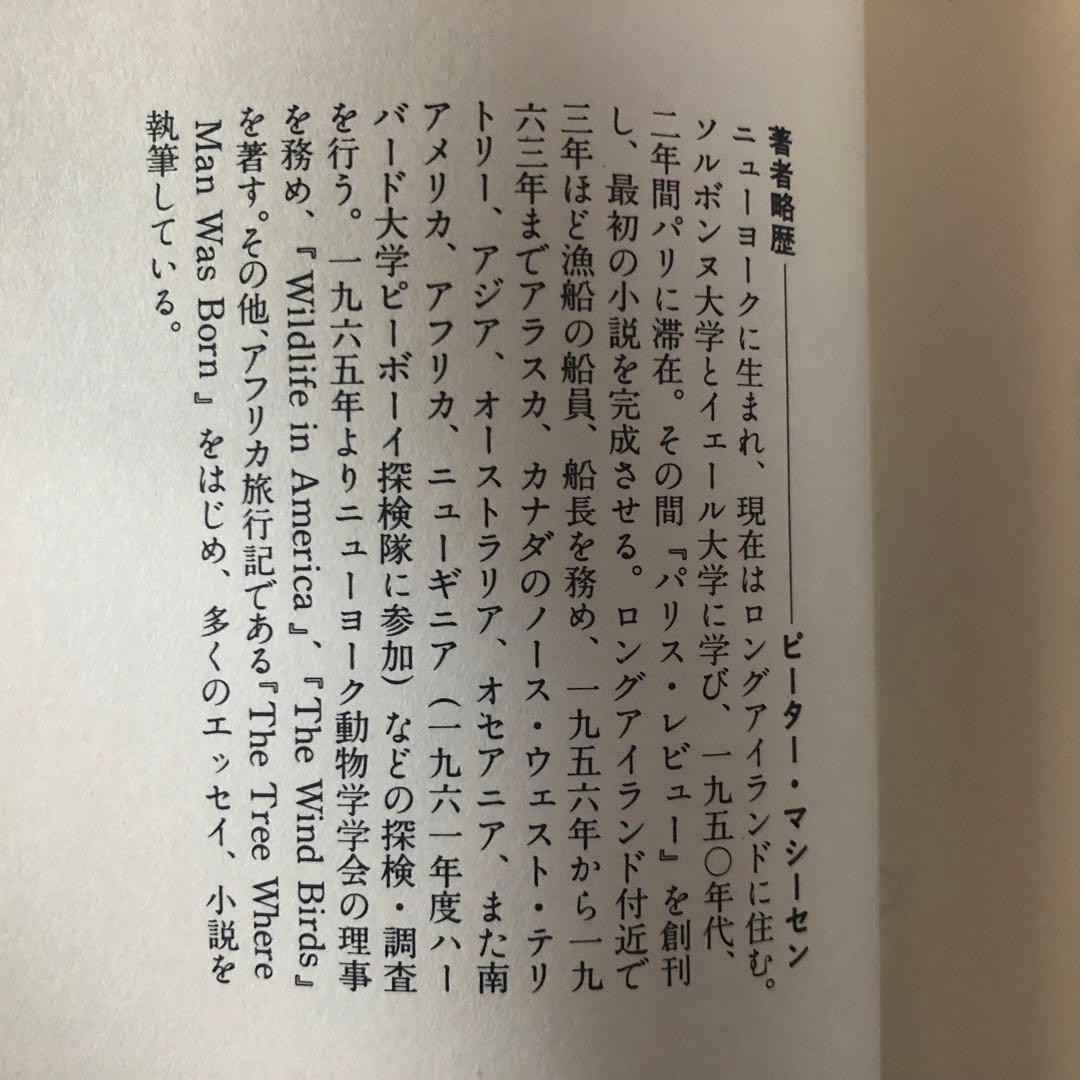 著者略歴――ピーター・マシーセン
ニューヨークに生まれ、現在はロングアイランドに住む。
ソルボンヌ大学とイェール大学に学び、一九五〇年代、
二年間パリに滞在。その間『パリス・レビュー』を創刊
し、最初の小説を完成させる。ロングアイランド付近で
三年ほど漁船の船員、船長を務め、一九五六年から一九
六三年までアラスカ、カナダのノース・ウェスト・テリ
トリー、アジア、オーストラリア、オセアニア、また南
アメリカ、アフリカ、ニューギニア(一九六一年度ハー
バード大学ピーボーイ探検隊に参加)などの探検・調査
を行う。一九六五年よりニューヨーク動物学学会の理事
を務め、『Wildlife in America』、『The Wind Birds』
を著す。その他、アフリカ旅行記である『The Tree Where
Man Was Born』をはじめ、多くのエッセイ、小説を
執筆している。